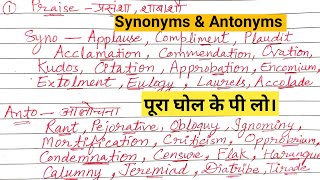 ① Praise - प्रशंसा, शाबाशी
Synonyms & Antonyms
Syno - Applause, Compliment, Plaudit
Acclamation, Commendation, Ovation,
Kudos, Citation, Approbation, Encomium,
Extolment, Eulogy, Laurels, Accolade
पूरा घोल के पी लो।
Anto - आलोचना
Rant, Pejorative, Obloquy, Ignominy,
Mortification, Criticism, Opprobrium,
Condemnation, Censure, Flak, Harangue
Calumny, Jeremiad, Diatribe, Tirade